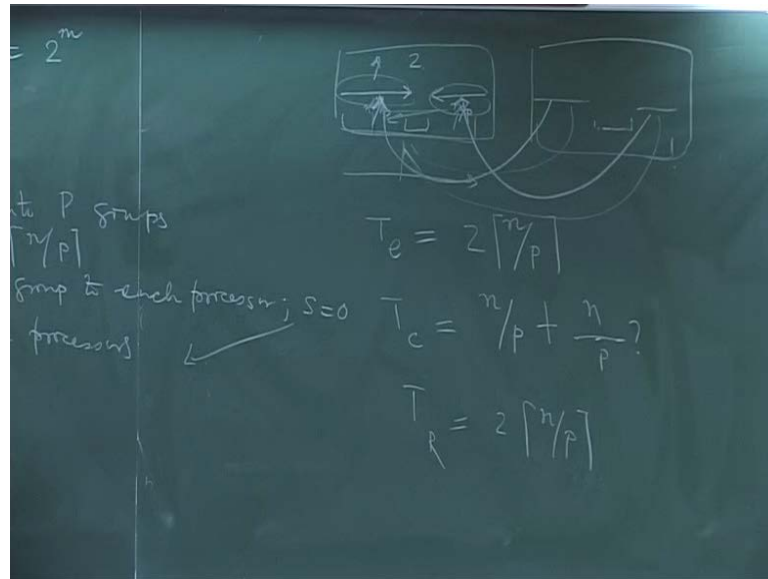 = 2^m
P groups
⌈n/p⌉
group to each processor; S=0
processors
1 2
T_e = 2⌈n/p⌉
T_c = n/p + n/p?
T_R = 2⌈n/p⌉